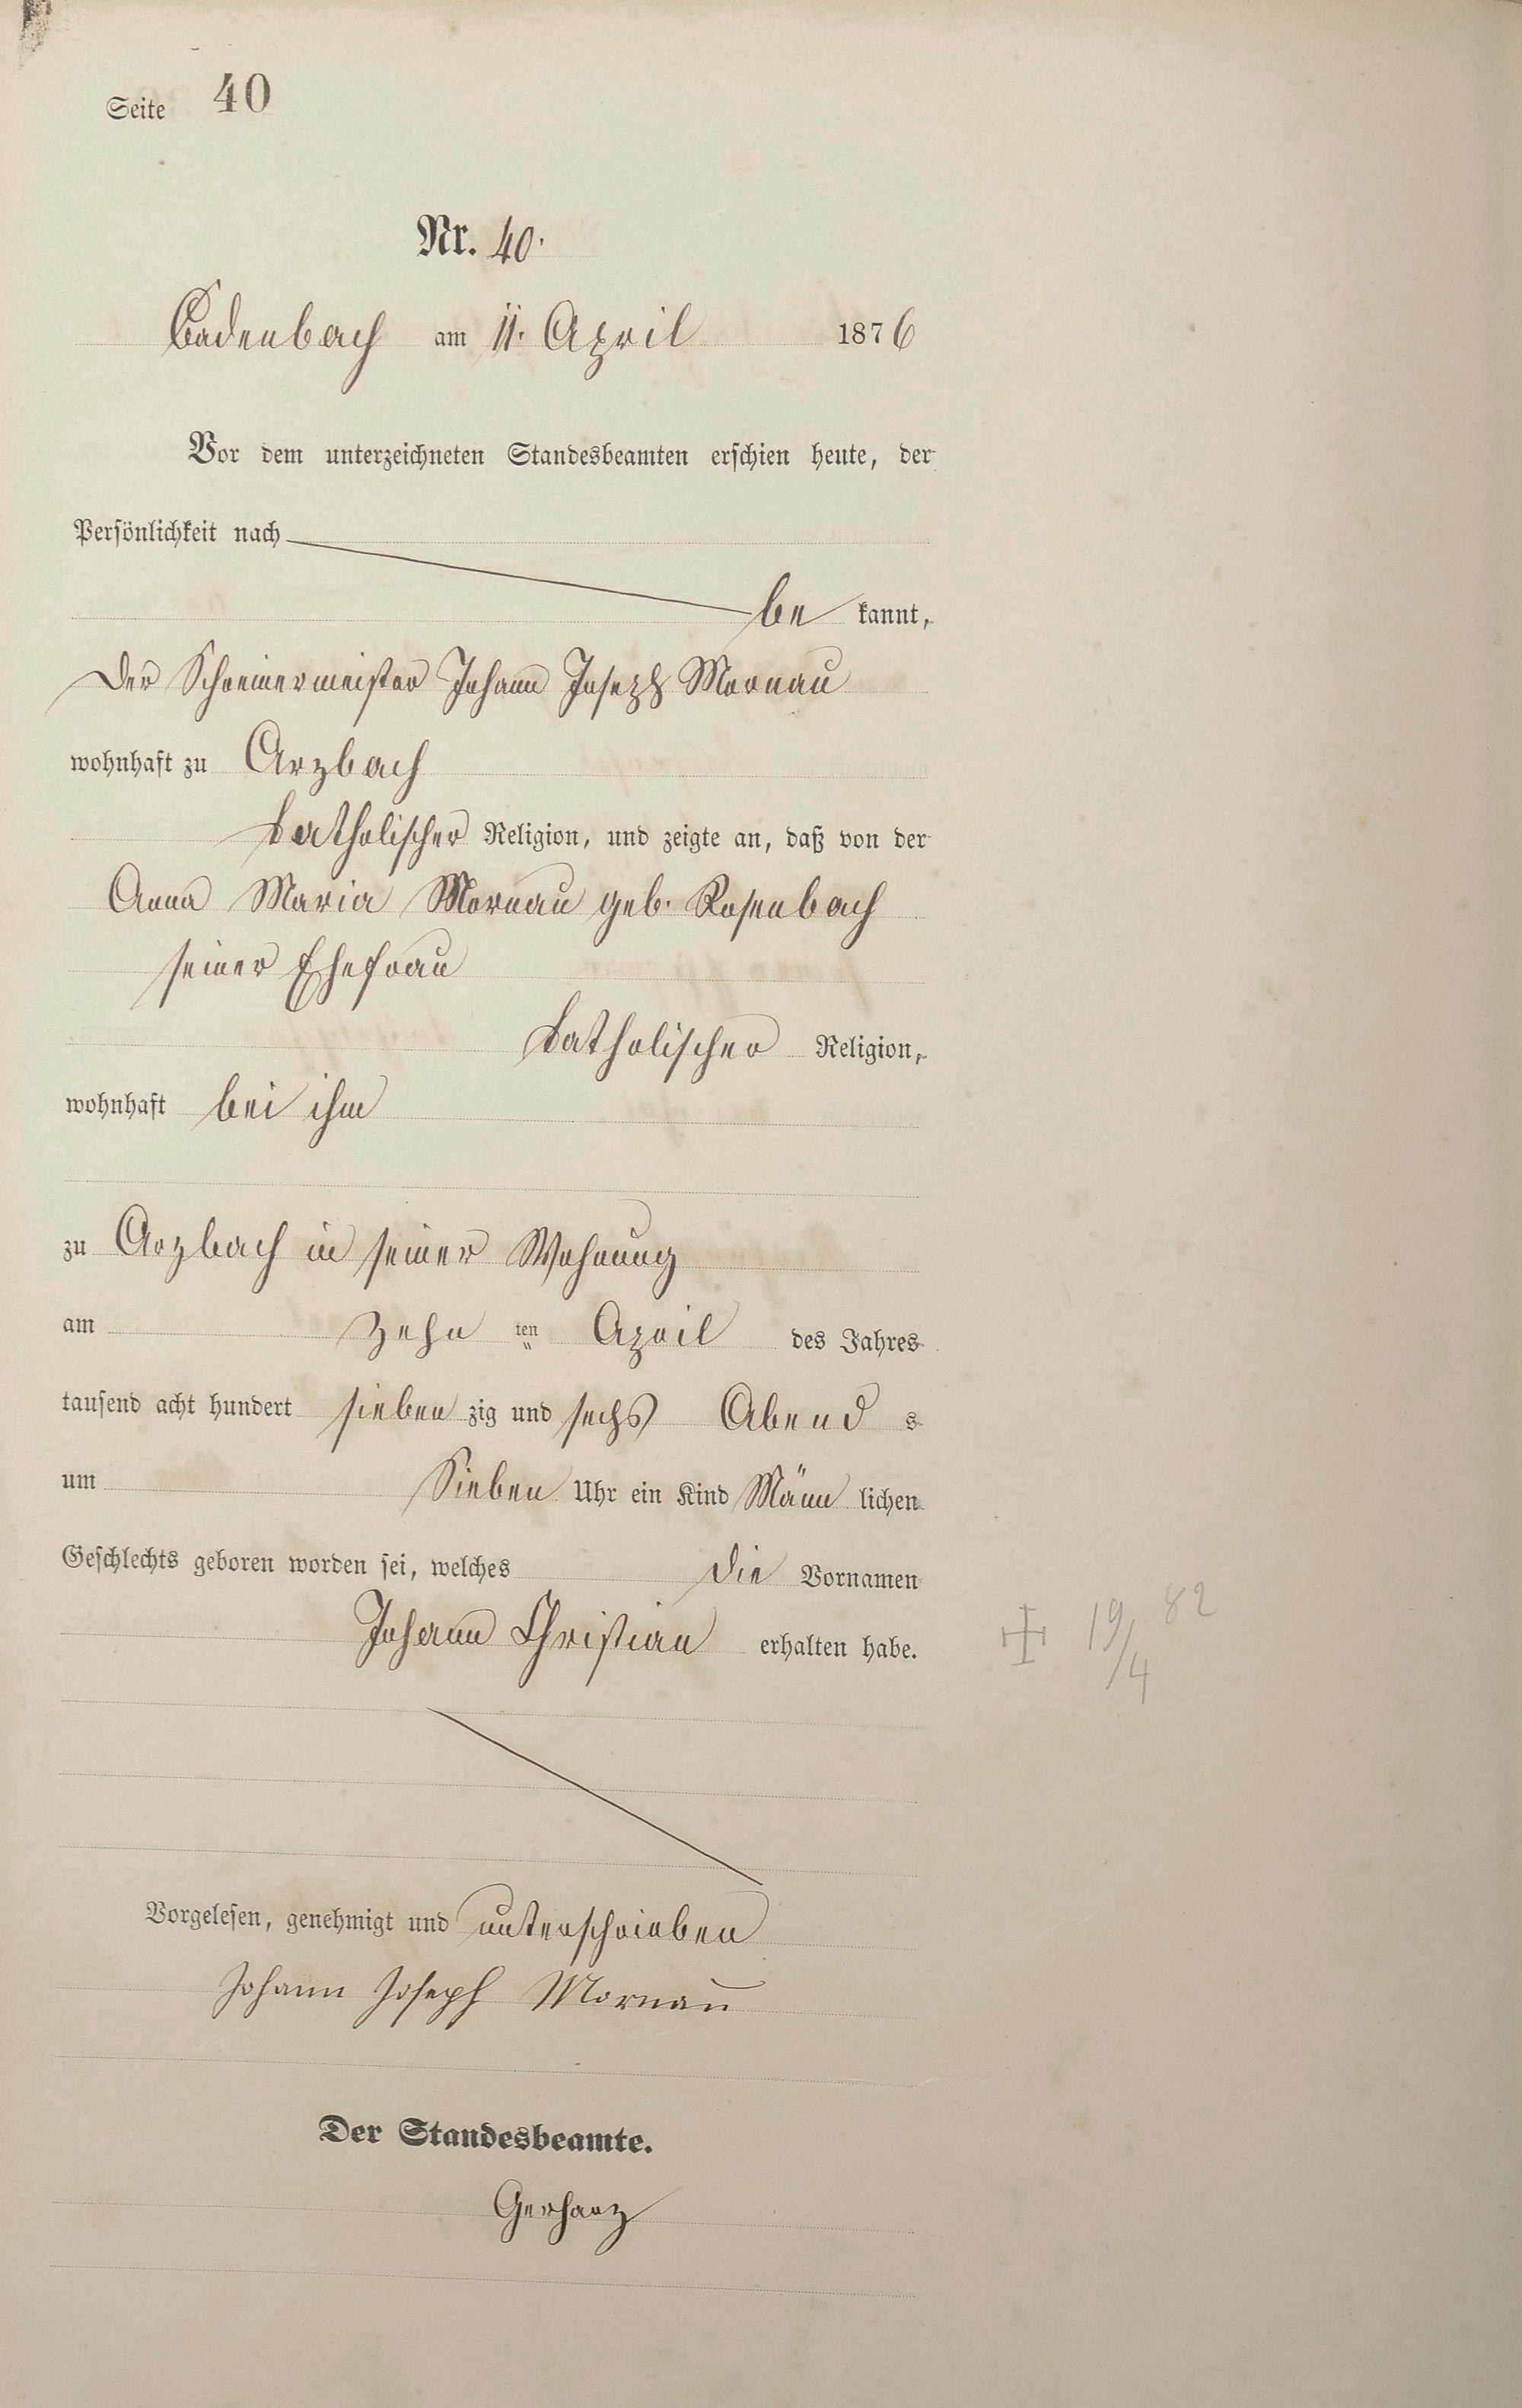 Seite 40
Nr. 40.
Cadenbach am 11. April 1876
Vor dem unterzeichneten Standesbeamten erschien heute, der
Persönlichkeit nach
be kannt,
der Schreinermeister Johann Joseph Mornau
wohnhaft zu Arzbach
katholischer Religion, und zeigte an, daß von der
Anna Maria Mornau geb. Rosenbach
seiner Ehefrau
katholischer Religion,
wohnhaft bei ihm
zu Arzbach in seiner Wohnung
am zehn ten April des Jahres
tausend acht hundert sieben zig und sechs Abend s
um Sieben Uhr ein Kind Männ lichen
Geschlechts geboren worden sei, welches die Vornamen
Johann Christian erhalten habe.
+ 19/4 82
Vorgelesen, genehmigt und unterschrieben
Johann Joseph Mornau
Der Standesbeamte.
Gerharz